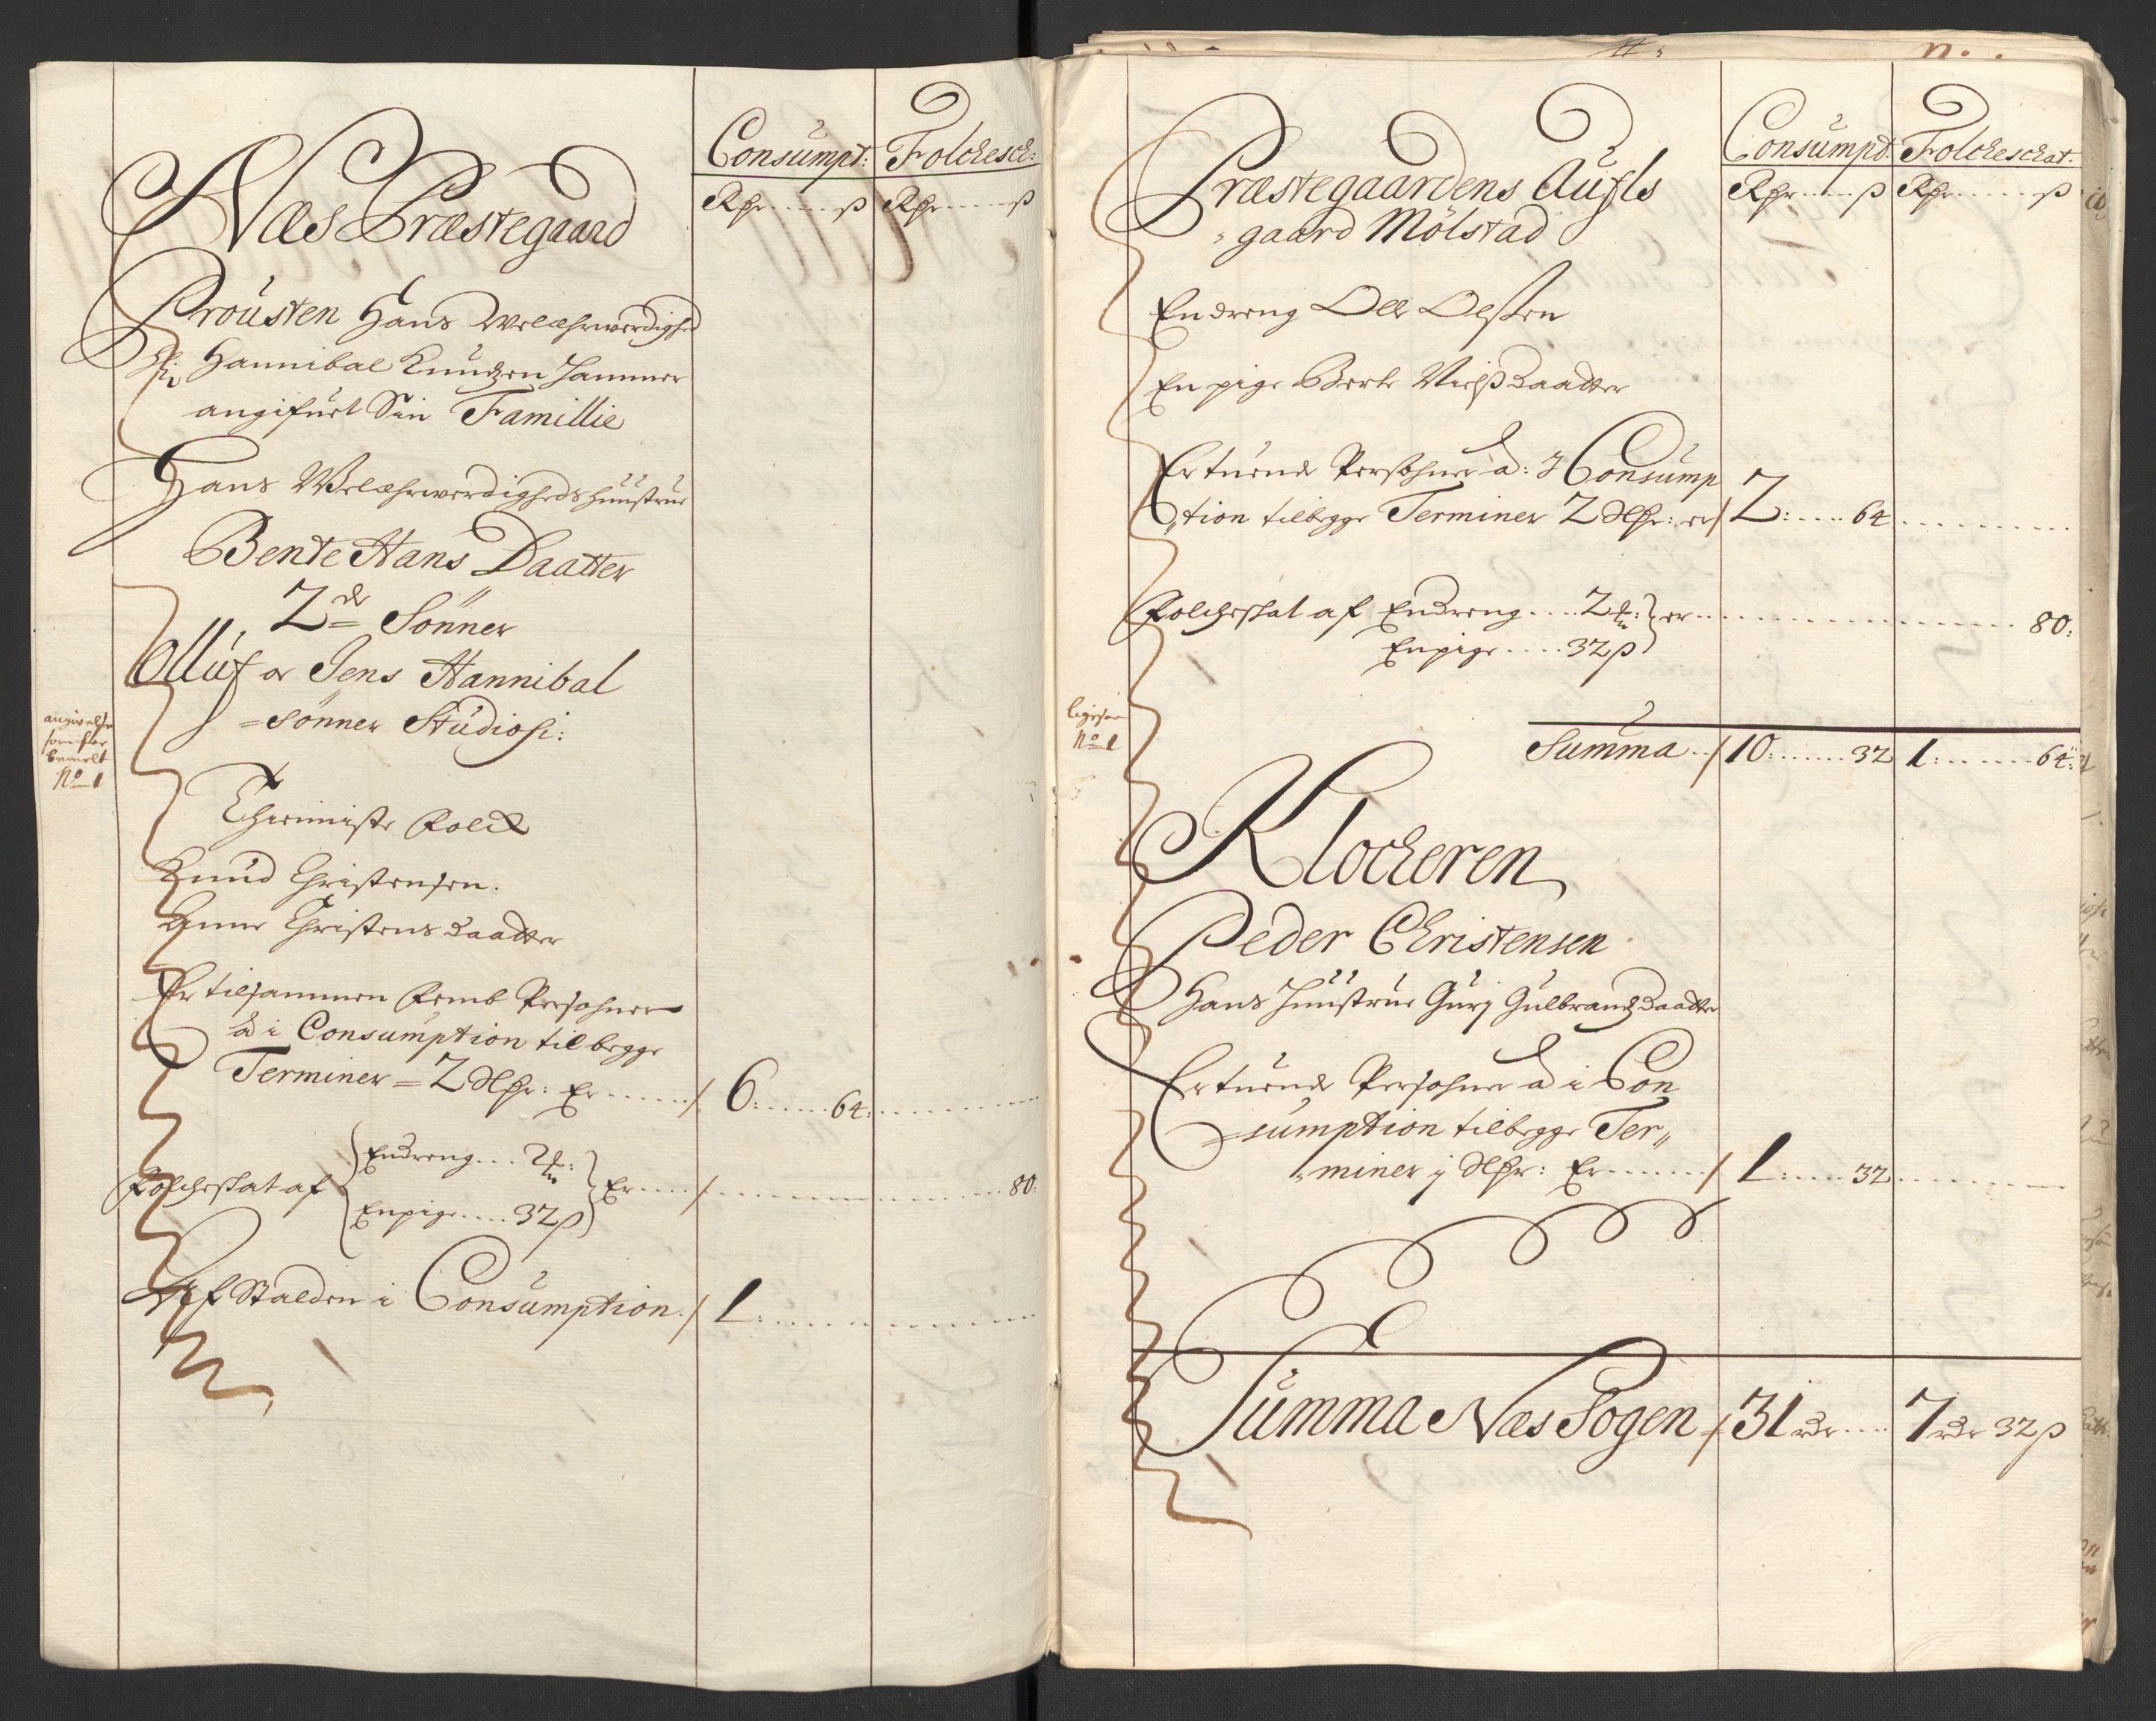 Consumpt: Folckesch:
Rdr ß Rdr ß
Næs Præstegaard
Prousten Hans Velærværdighed
Hr Hannibal Knudzen Hammer
angifuet Sin Famillie
Hans Velærværdigheds Huustrue
Bente Hans Daatter
2de Sönner
Olluf og Jens Hannibal
=Sönner Studiosi:
angivelse
bemelt
No 1
Thieniste Folck
Knud Christensen.
Anne Christens daatter
Er tilsammen Femb Persohner
à i Consumption til begge
Terminer = 2 Rdr: Er / 6: 64:
Folcheskat af Endreng 2 Er / 80:
En pige 32 ß
Af Stalden i Consumption / 1:
Consumpt: Folckeschat:
Rdr ß Rdr ß
Præstegaardens Aufls
gaard Mölstad
En dreng Ole Olsen
En pige Berte Nielß daatter
Er tuende Persohner à: i Consump
tion til begge Terminer 2 Rdr: er / 2: 64
Folcheskat af En dreng 2 er 80:
En pige 32 ß
No 1
Summa / 10: 32 1: 64:
Klockeren
Peder Christensen
Hans Huustrue Gurj Gulbrandz daatter
Er tuende Persohner à i Con
sumption til begge Ter„
„miner j Rdr: Er / 1: 32
Summa Næs Sogen / 31 rdr 7 rdr 32 ß